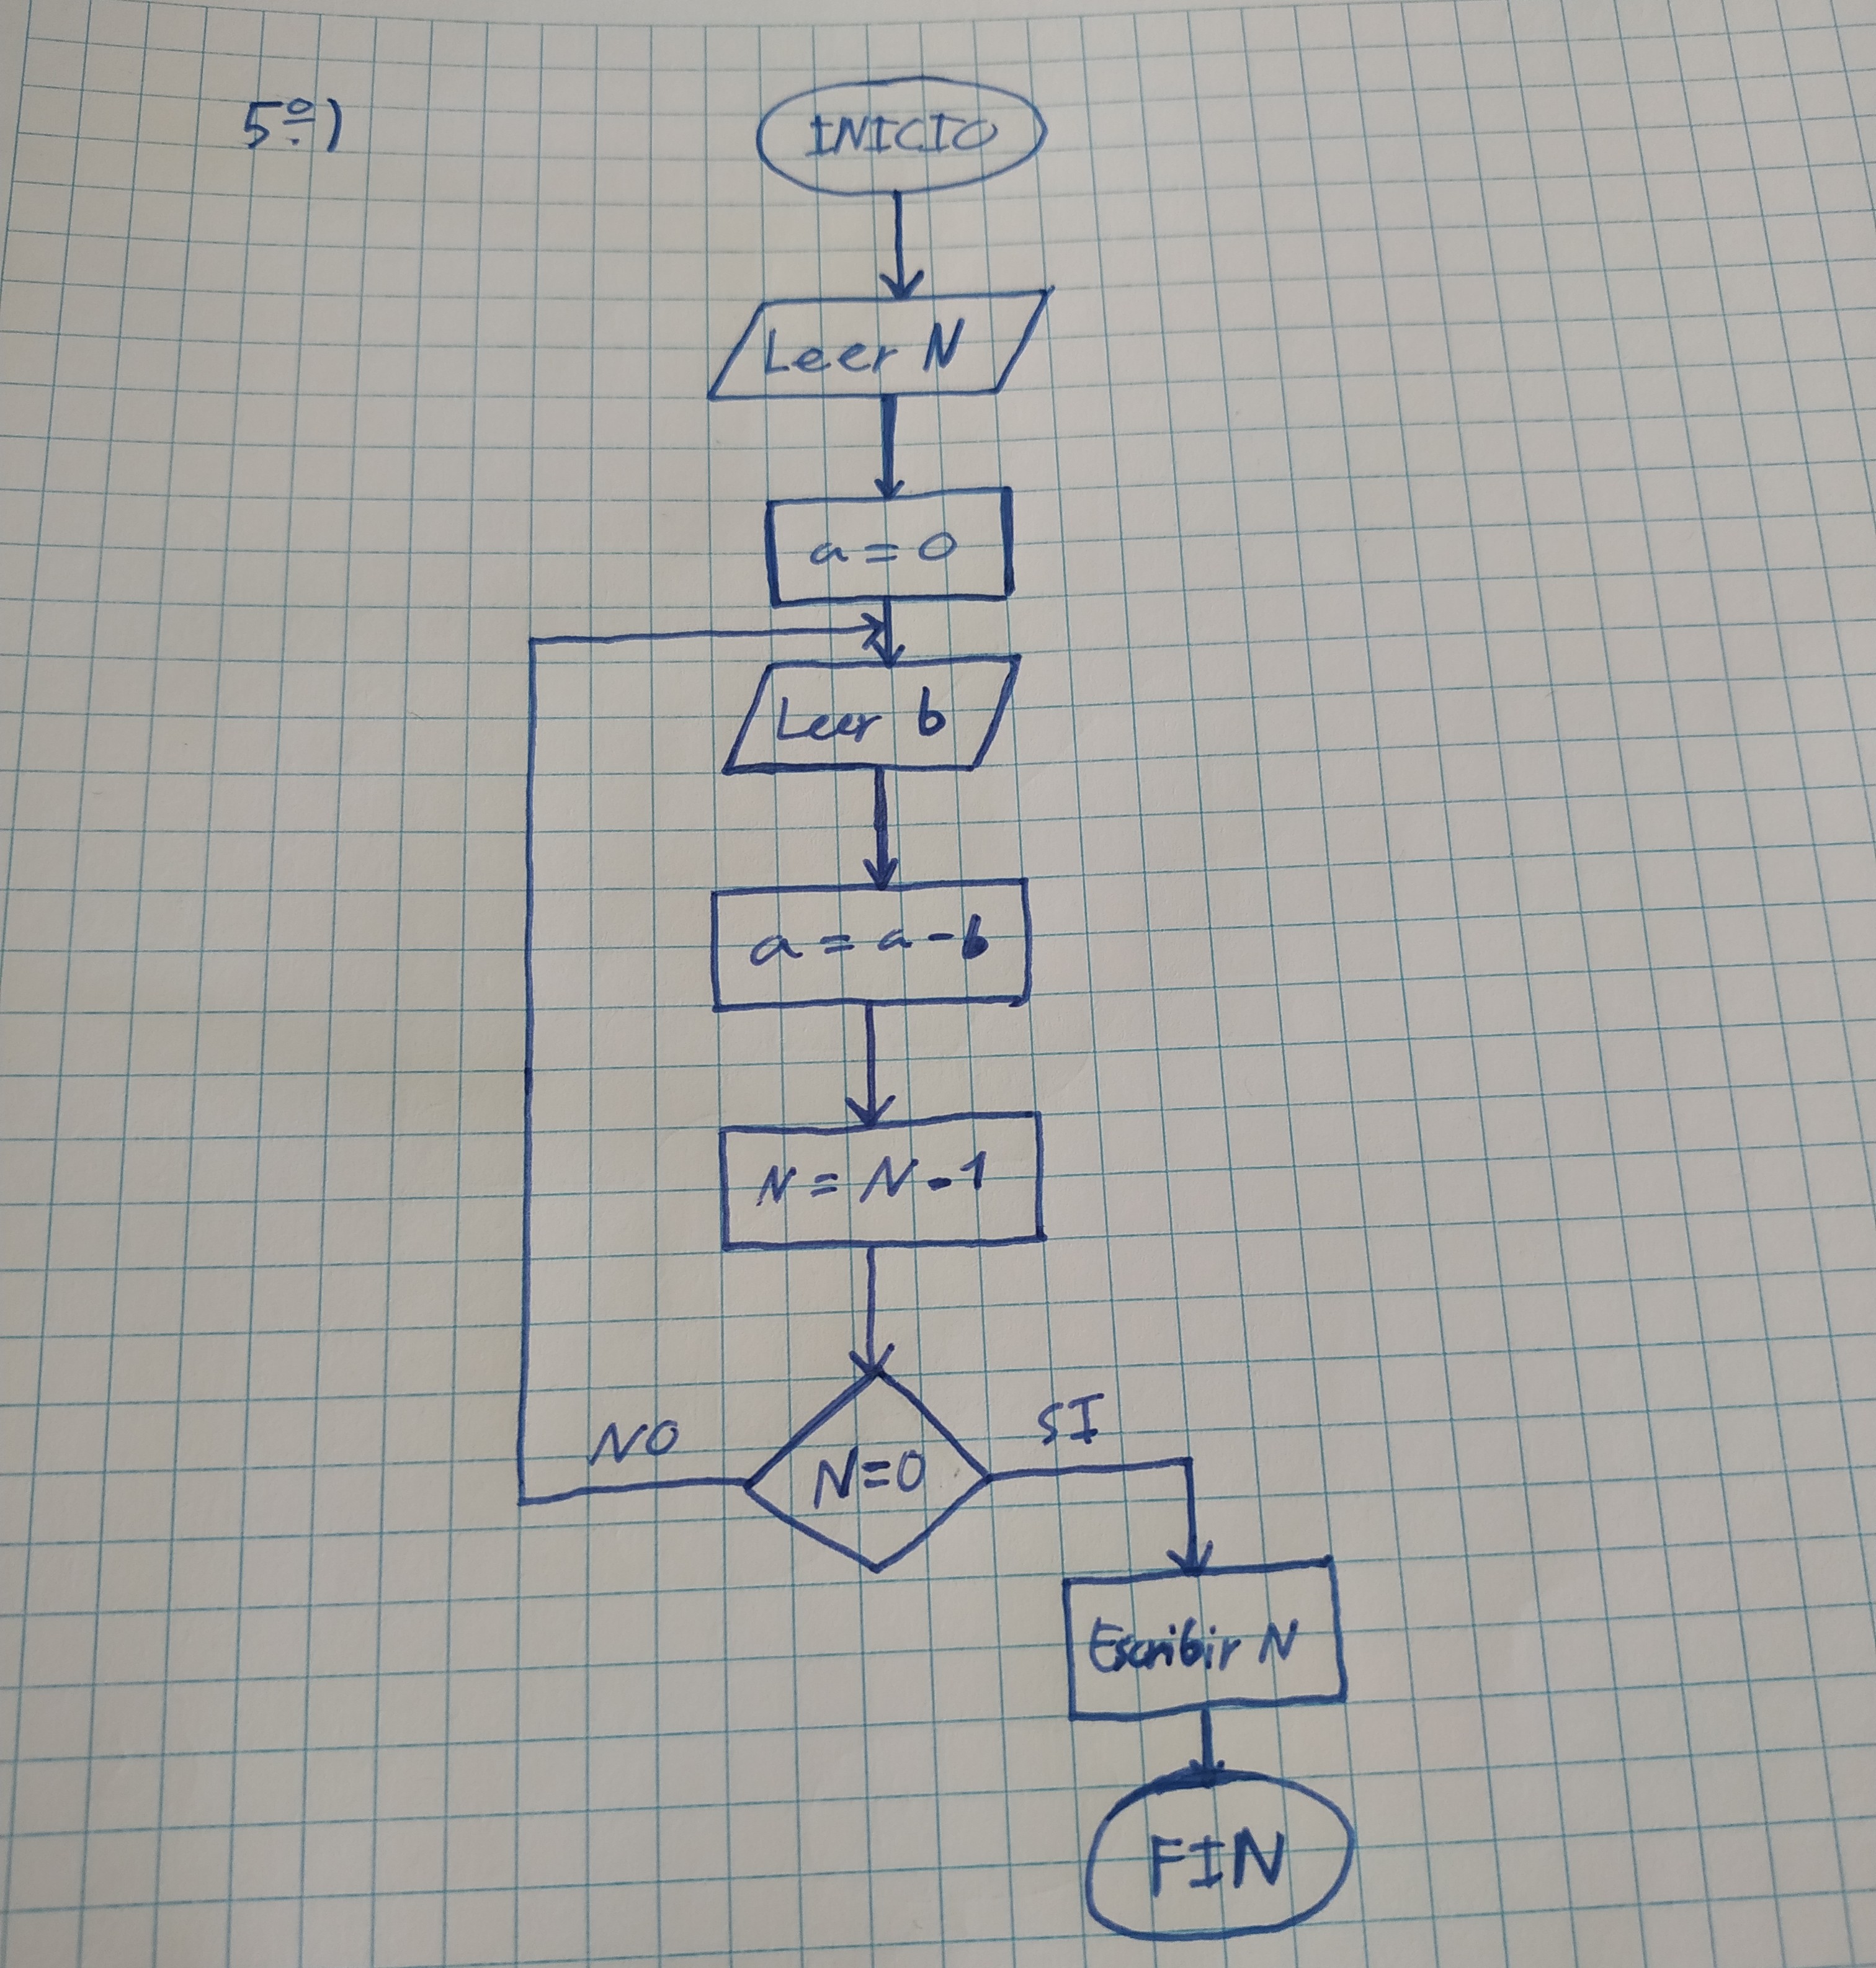 5º)
INICIO
Leer N
a = 0
Leer b
a = a - b
N = N - 1
N=0
NO
SI
Escribir N
FIN